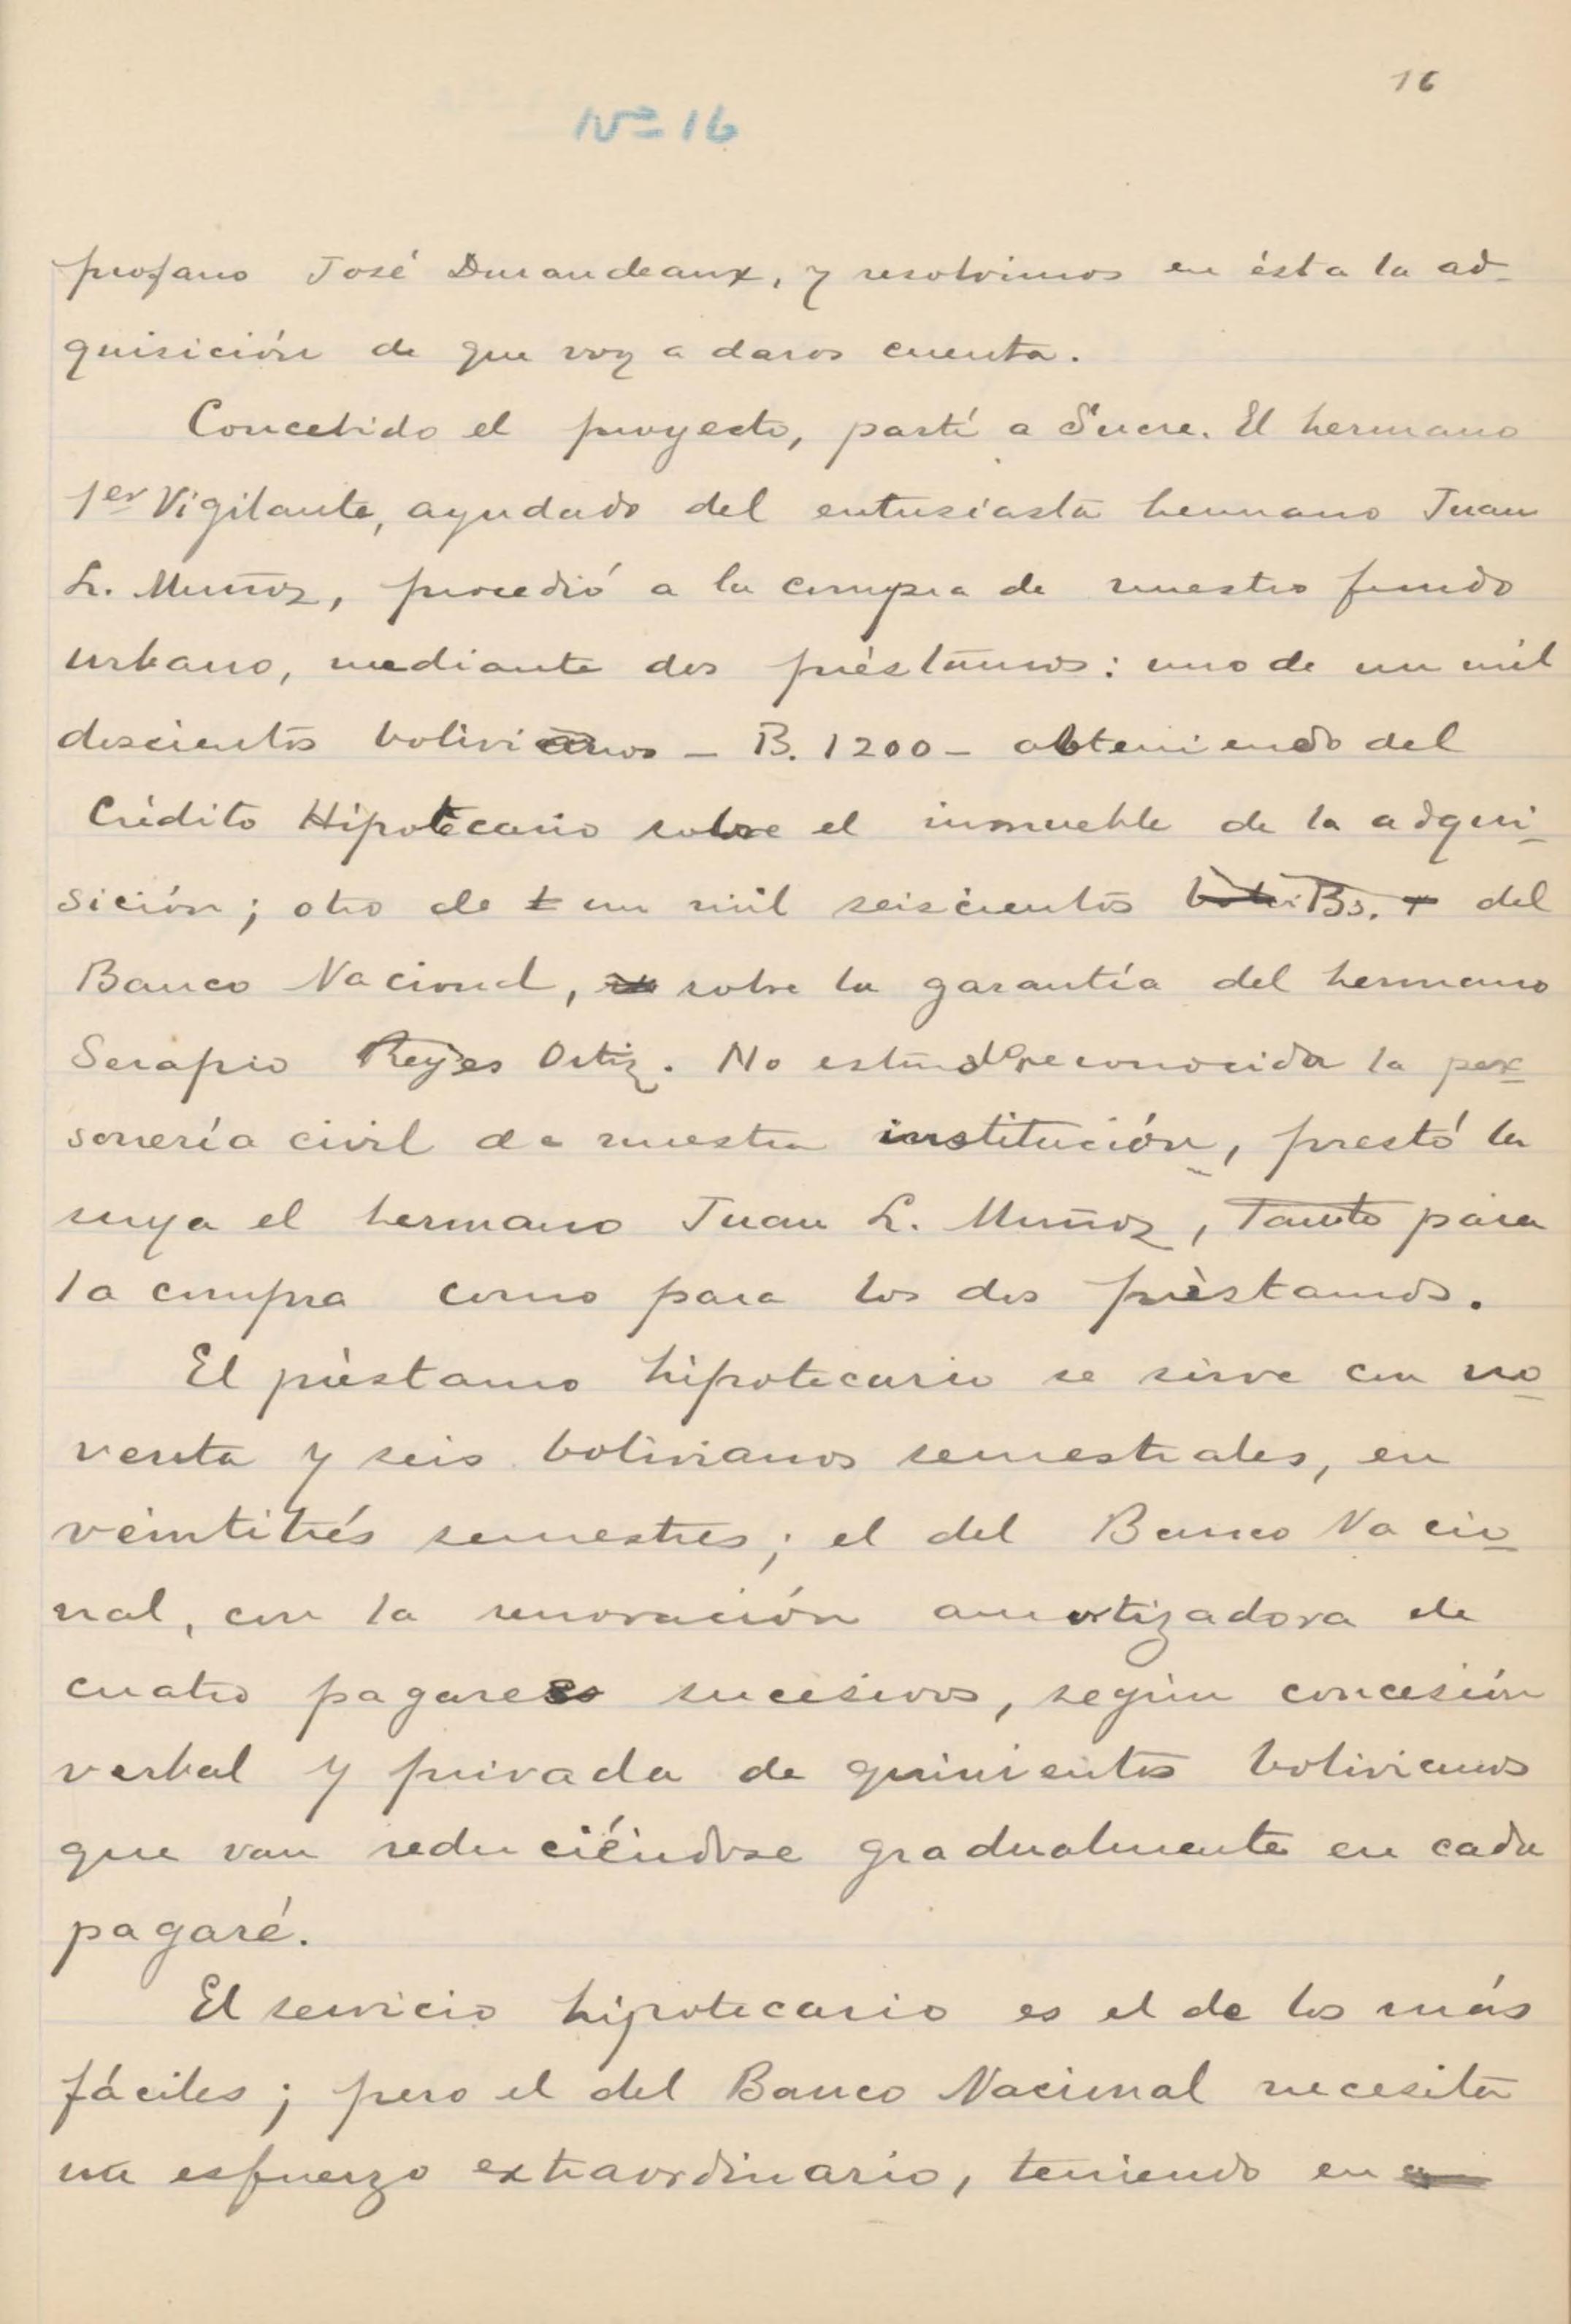 16
Nº 16
profano José Durandeaux, y resolvimos en ésta la ad-
quisición de que voy a daros cuenta.
Concebido el proyecto, partí a Sucre. El hermano
1er Vigilante, ayudado del entusiasta hermano Juan
L. Muñoz, procedió a la compra de nuestro fundo
urbano, mediante dos préstamos: uno de un mil
doscientos bolivianos – B. 1200 – obteniendo del
Crédito Hipotecario sobre el inmueble de la adqui-
sición; otro de un mil seiscientos Bs. del
Banco Nacional, sobre la garantía del hermano
Serapio Reyes Ortiz. No estando reconocida la per-
sonería civil de nuestra institución, prestó la
suya el hermano Juan L. Muñoz, tanto para
la compra como para los dos préstamos.
El préstamo hipotecario se sirve con no-
venta y seis bolivianos semestrales, en
veintitrés semestres; el del Banco Nacio-
nal, con la renovación amortizadora de
cuatro pagares sucesivos, según concesión
verbal y privada de quinientos bolivianos
que van reduciéndose gradualmente en cada
pagaré.
El servicio hipotecario es el de los más
fáciles; pero el del Banco Nacional necesita
un esfuerzo extraordinario, teniendo en